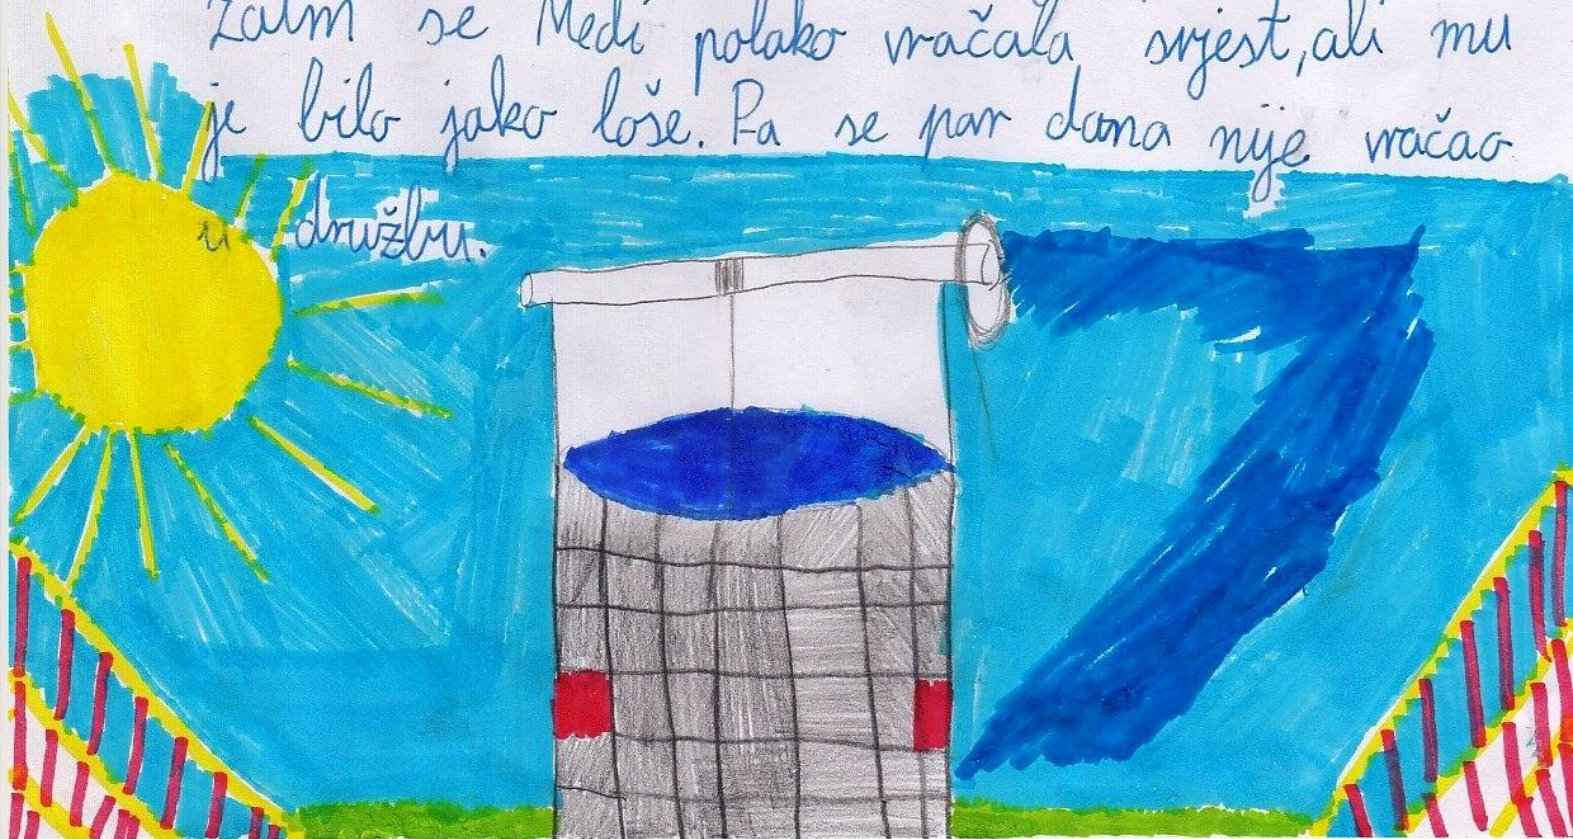 Zatim se Medi polako vračala svjest, ali mu
je bilo jako loše. Pa se par dana nije vračao
u družbu.